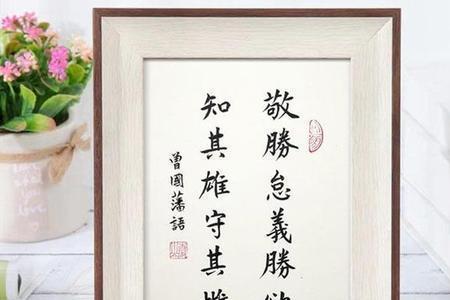 敬勝怠義勝
知其雄守其
曾國藩語